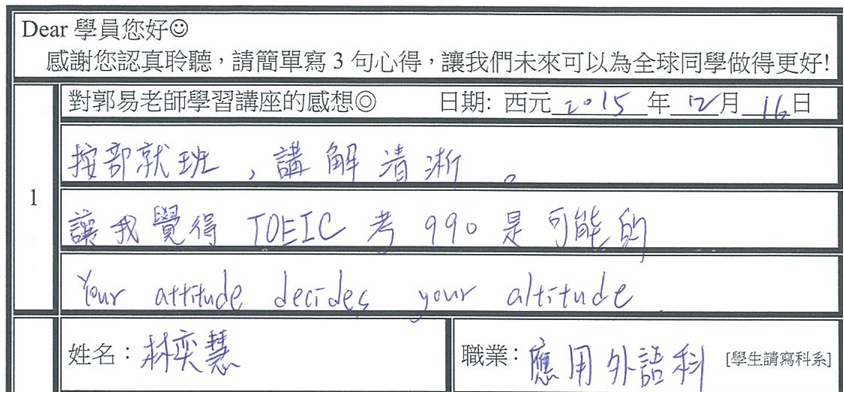 Dear 學員您好☺
感謝您認真聆聽，請簡單寫 3 句心得，讓我們未來可以為全球同學做得更好!
1
對郭易老師學習講座的感想◎ 日期: 西元 2015 年 12 月 16 日
按部就班，講解清淅。
讓我覺得 TOEIC 考 990 是可能的
Your attitude decides your altitude
姓名：林奕慧 職業：應用外語科 [學生請寫科系]